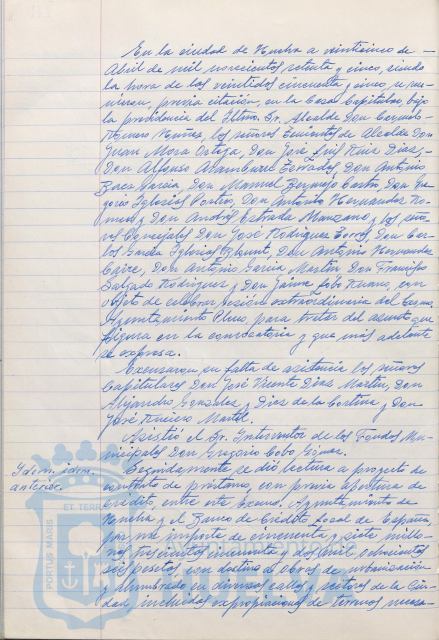 En la ciudad de Huelva a veinticinco de
Abril de mil novecientos setenta y cinco, siendo
la hora de las veintidos cincuenta y cinco, se reu-
nieron, previa citación, en la Casa Capitular, bajo
la presidencia del Iltmo. Sr. Alcalde Don
Romero los señores Tenientes de Alcalde Don
Juan Mora Ortiga, Don José Luis Ruiz Diaz,
Don Alfonso Aramburu Terrades, Don Antonio
Baez Garcia, Don Manuel Bermejo Castro, Don Gre-
gorio Iglesias Don Antonio Hernandez
y Don Andrés Estrada Manzano y los seño-
res Concejales Don José Rodriguez Don Car-
los Iglesias Don Antonio Hernandez
Don Antonio Garcia Martin Don Francisco
Salgado Rodriguez y Don Jaime con
objeto de celebrar sesión extraordinaria del Excmo.
Ayuntamiento Pleno, para tratar del asunto que
figura en la convocatoria y que mas adelante
se expresa.
Excusaron su falta de asistencia los señores
Capitulares Don José Vicente Diaz Martin, Don
Alejandro Gonzalez y Diez de la Cortina y Don
José
Asistió el Sr. Interventor de los Fondos Mu-
nicipales Don Gregorio Cobo Gómez.
anterior.
Seguidamente se dió lectura a proyecto de
contrato de préstamo, con previa apertura de
crédito, entre este Excmo. Ayuntamiento de
Huelva y el Banco de Crédito Local de España,
por un importe de cincuenta y siete millo-
nes y dos mil ochocientos
seis pesetas con destino a obras de urbanización
y alumbrado en diversas calles y sectores de la Ciu-
dad, incluidas expropiaciones de terrenos necesa-
PORTUS MARIS
ET TERR